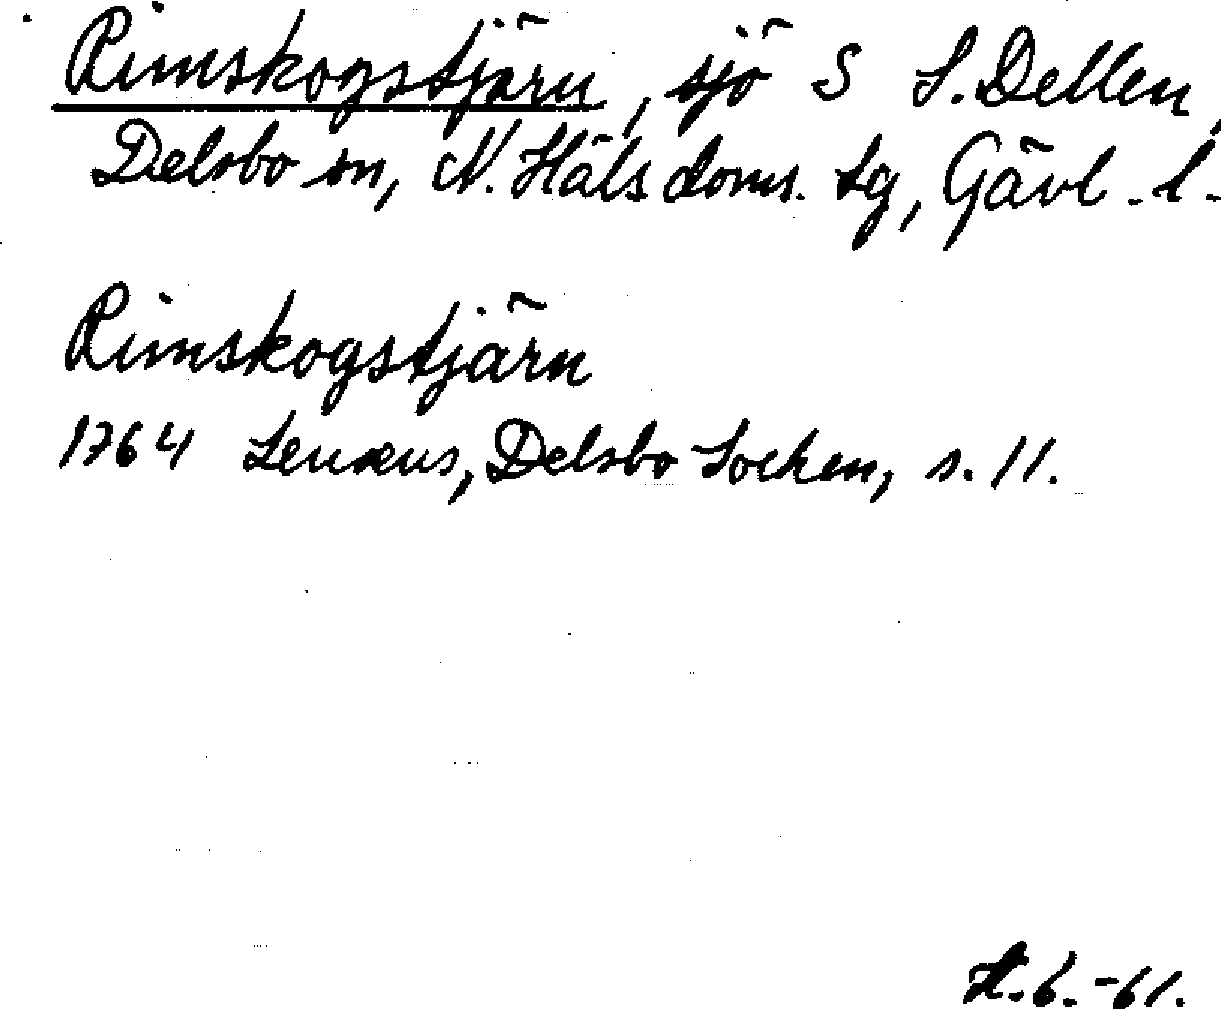 Rimskogstjärn, sjö S S. Dellen,
Delsbo sn, N. Häls doms. tg, Gävl. l.
Rimskogstjärn
1764 Lenæus, Delsbo Socken, s. 11.
6. -61.